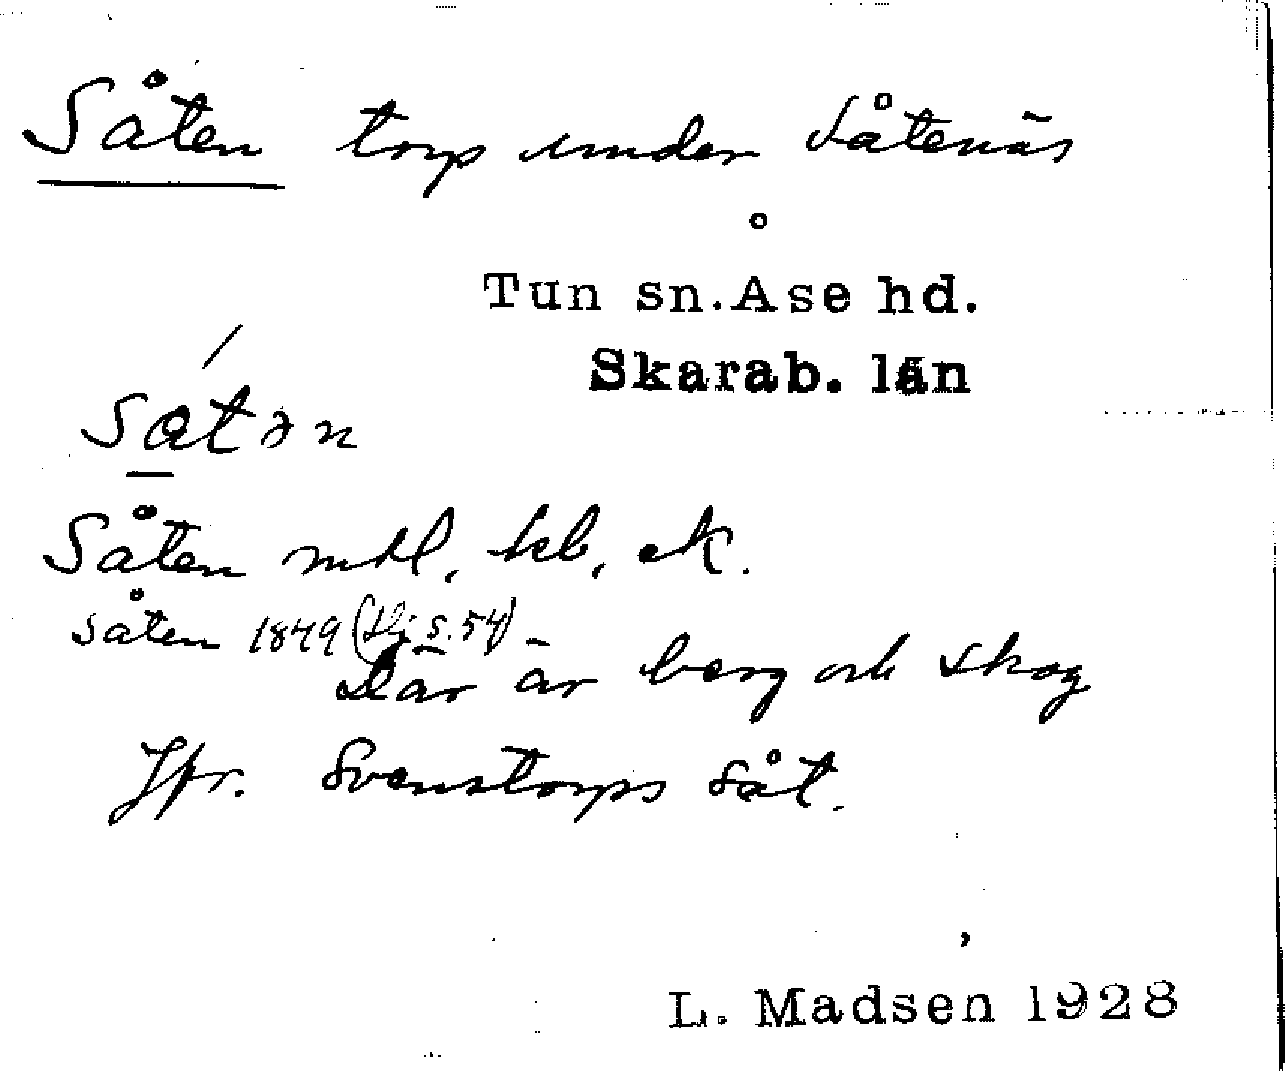 Såten torp under Såtenäs
Tun sn. Åse hd.
Skarab. län
såtən
Såten mtl, kb, ek.
Såten 1849 (Lj s. 54)
Där är berg och skog
Jfr. Svenstorps Såt.
L. Madsen 1928